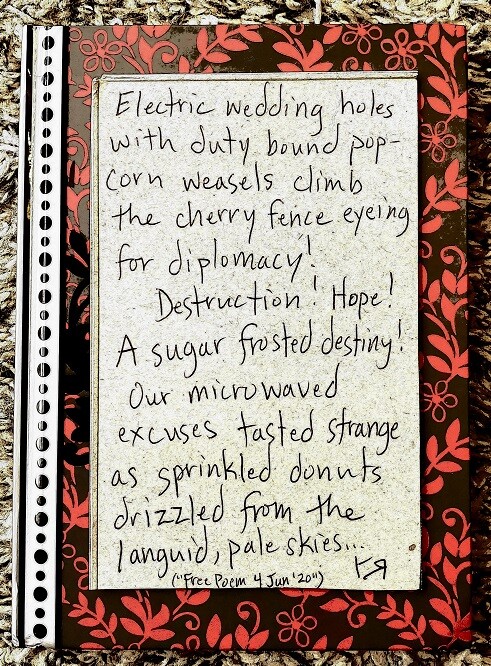 Electric wedding holes
with duty bound pop-
corn weasels climb
the cherry fence eyeing
for diplomacy!
Destruction! Hope!
A sugar frosted destiny!
Our microwaved
excuses tasted strange
as sprinkled donuts
drizzled from the
languid, pale skies...
("Free Poem 4 Jun '20")